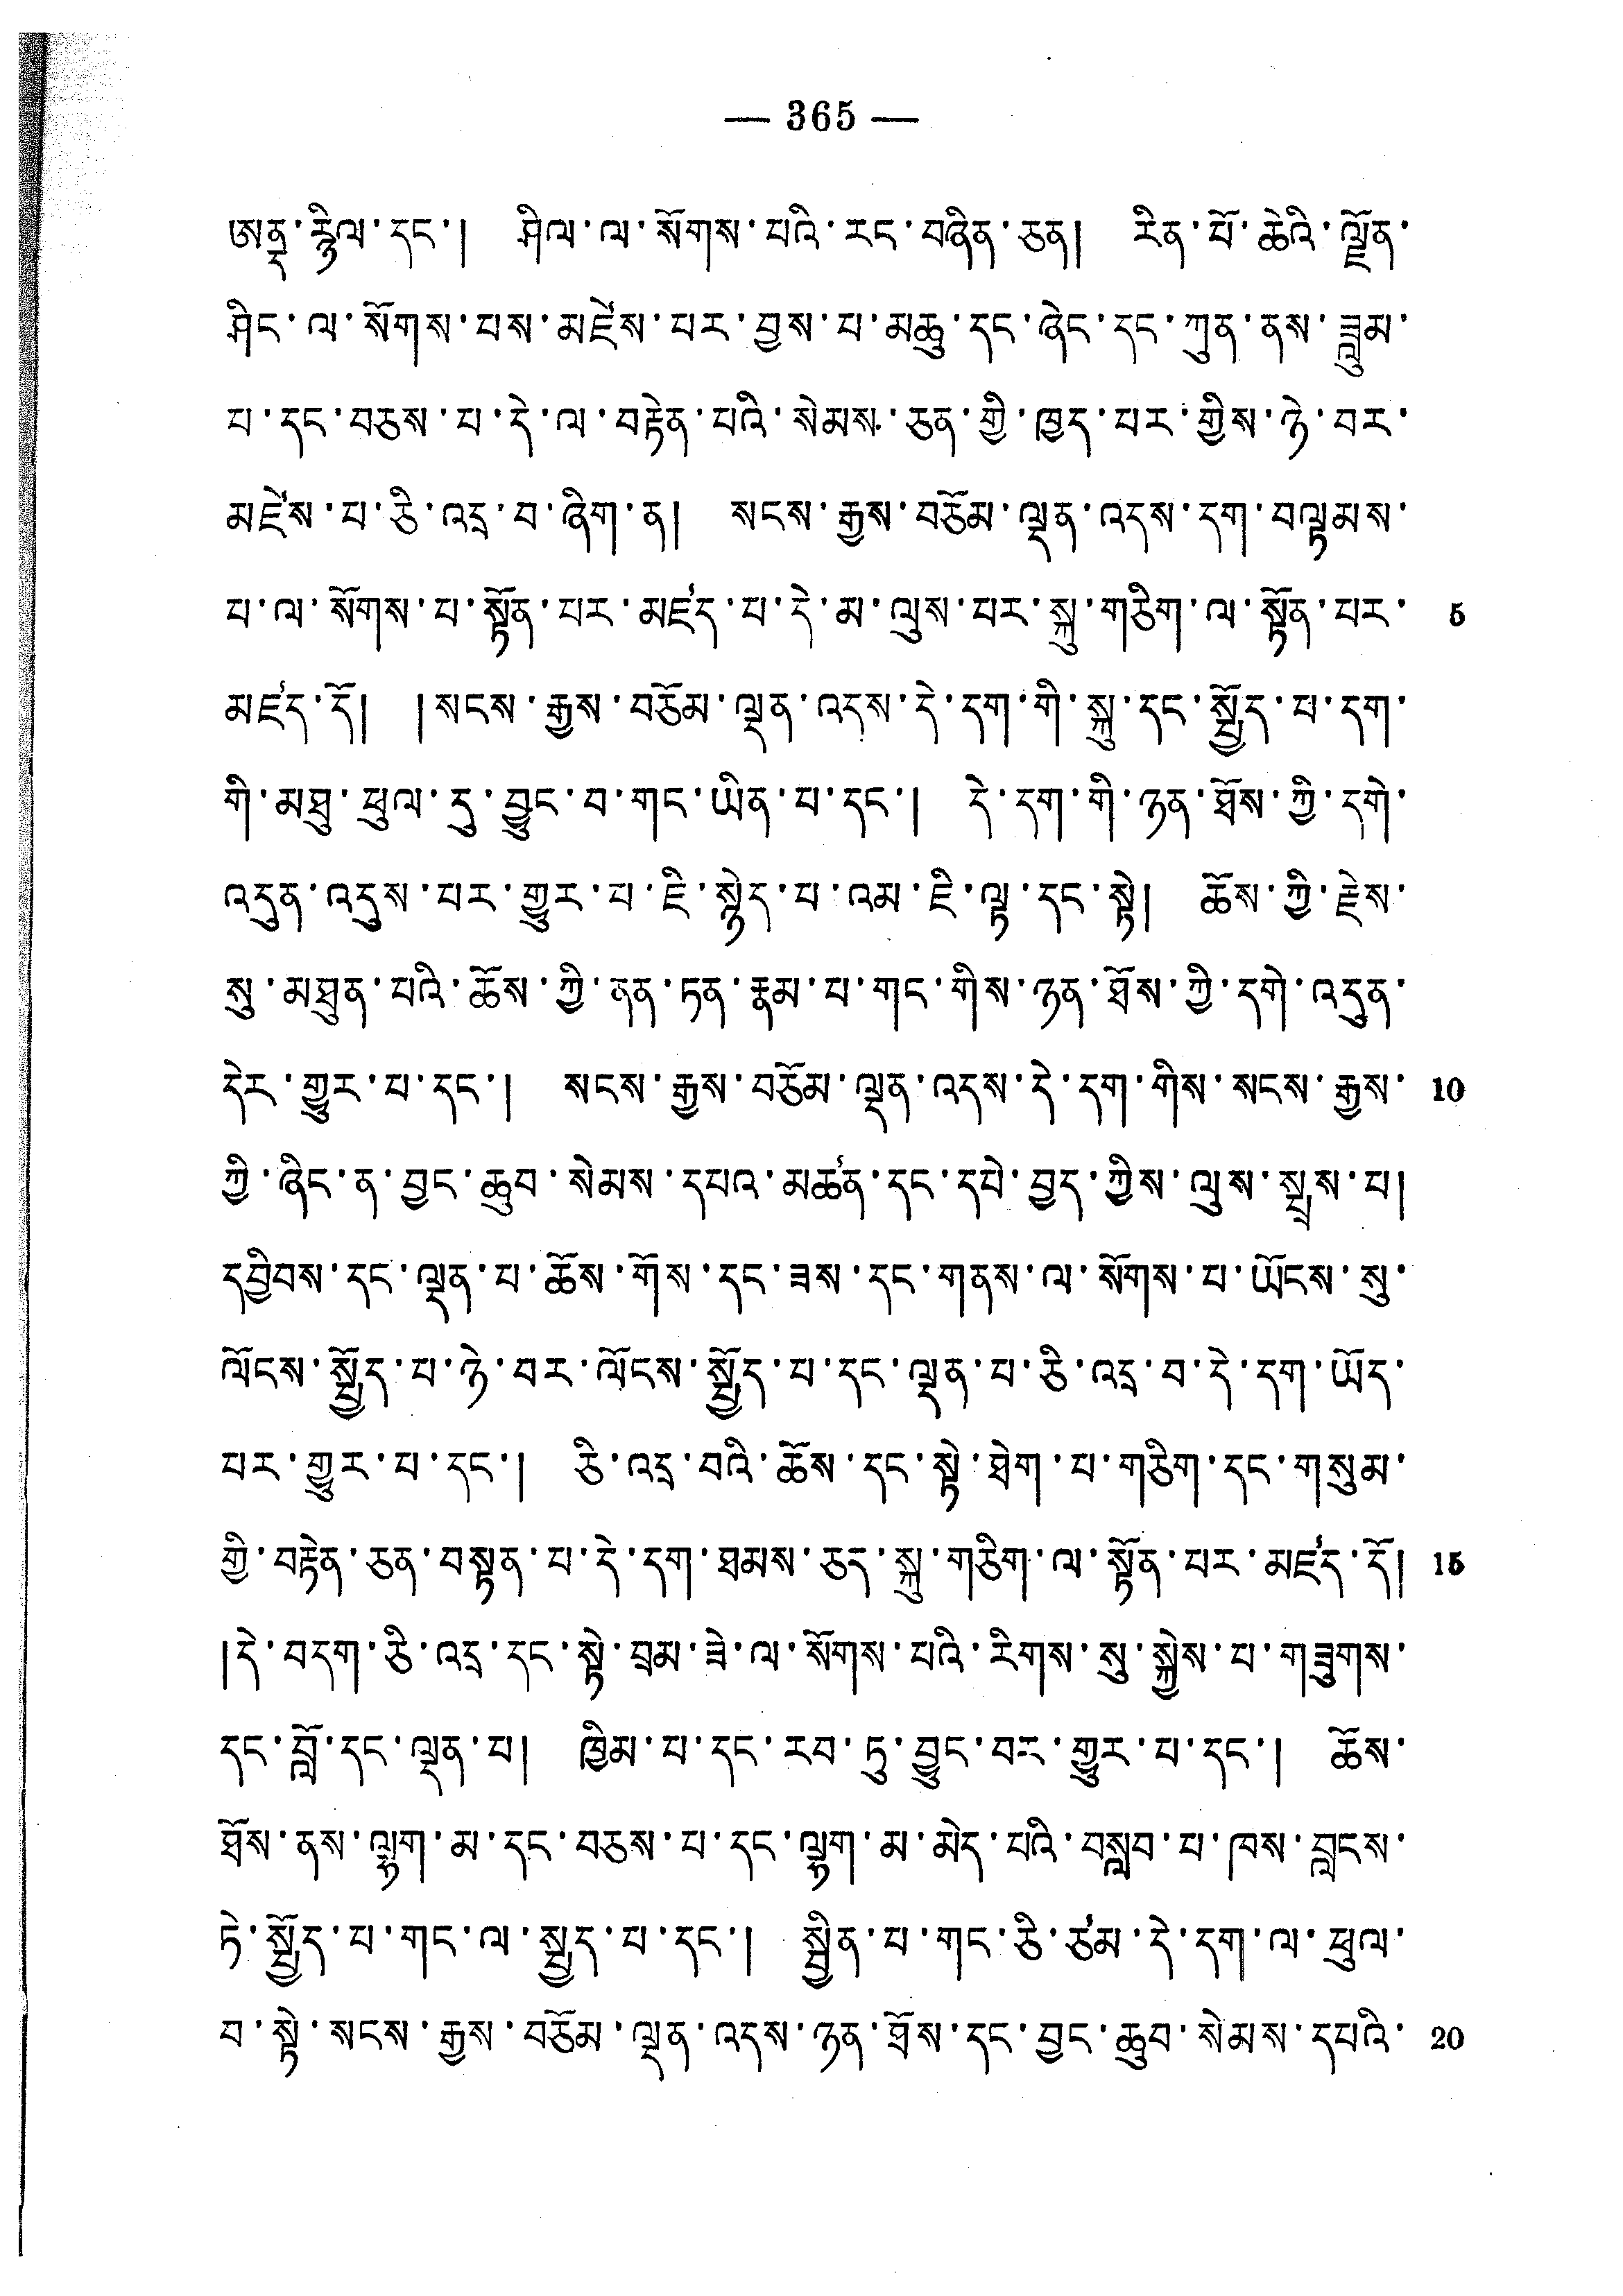 — 365 —
ཨནྡ་རྙིལ་དང་། ཤིལ་ལ་སོགས་པའི་རང་བཞིན་ཅན། རིན་པོ་ཆེའི་ལྗོན་
ཤིང་ལ་སོགས་པས་མཛེས་པར་བྱས་པ་མཆུ་དང་ཞེང་དང་ཀུན་ནས་ཟླུམ་
པ་དང་བཅས་པ་དེ་ལ་བརྟེན་པའི་སེམས་ཅན་གྱི་ཁྱད་པར་གྱིས་ཉེ་བར་
མཛེས་པ་ཅི་འདྲ་བ་ཞིག་ན། སངས་རྒྱས་བཅོམ་ལྡན་འདས་དག་བལྟམས་
པ་ལ་སོགས་པ་སྟོན་པར་མཛད་པ་དེ་མ་ལུས་པར་སྐུ་གཅིག་ལ་སྟོན་པར་ 5
མཛད་དོ། །སངས་རྒྱས་བཅོམ་ལྡན་འདས་དེ་དག་གི་སྐུ་དང་སྤྱོད་པ་དག་
གི་མཐུ་ཕུལ་དུ་བྱུང་བ་གང་ཡིན་པ་དང་། དེ་དག་གི་ཉན་ཐོས་ཀྱི་དགེ་
འདུན་འདུས་པར་གྱུར་པ་ཇི་སྙེད་པ་འམ་ཇི་ལྟ་དང་སྟེ། ཆོས་ཀྱི་རྗེས་
སུ་མཐུན་པའི་ཆོས་ཀྱི་ནན་ཏན་རྣམ་པ་གང་གིས་ཉན་ཐོས་ཀྱི་དགེ་འདུན་
དེར་གྱུར་པ་དང་། སངས་རྒྱས་བཅོམ་ལྡན་འདས་དེ་དག་གིས་སངས་རྒྱས་ 10
ཀྱི་ཞིང་ན་བྱང་ཆུབ་སེམས་དཔའ་མཚན་དང་དཔེ་བྱད་ཀྱིས་ལུས་སྤྲས་པ།
དབྱིབས་དང་ལྡན་པ་ཆོས་གོས་དང་ཟས་དང་གནས་ལ་སོགས་པ་ཡོངས་སུ་
ལོངས་སྤྱོད་པ་ཉེ་བར་ལོངས་སྤྱོད་པ་དང་ལྡན་པ་ཅི་འདྲ་བ་དེ་དག་ཡོད་
པར་གྱུར་པ་དང་། ཅི་འདྲ་བའི་ཆོས་དང་སྟེ་ཐེག་པ་གཅིག་དང་གསུམ་
གྱི་བརྟེན་ཅན་བསྟན་པ་དེ་དག་ཐམས་ཅད་སྐུ་གཅིག་ལ་སྟོན་པར་མཛད་དོ། 15
།དེ་བདག་ཅི་འདྲ་དང་སྟེ་བྲམ་ཟེ་ལ་སོགས་པའི་རིགས་སུ་སྐྱེས་པ་གཟུགས་
དང་བློ་དང་ལྡན་པ། ཁྱིམ་པ་དང་རབ་ཏུ་བྱུང་བར་གྱུར་པ་དང་། ཆོས་
ཐོས་ནས་ལྷག་མ་དང་བཅས་པ་དང་ལྷག་མ་མེད་པའི་བསླབ་པ་ཁས་བླངས་
ཏེ་སྤྱོད་པ་གང་ལ་སྤྱད་པ་དང་། སྦྱིན་པ་གང་ཅི་ཙམ་དེ་དག་ལ་ཕུལ་
བ་སྟེ་སངས་རྒྱས་བཅོམ་ལྡན་འདས་ཉན་ཐོས་དང་བྱང་ཆུབ་སེམས་དཔའི་ 20